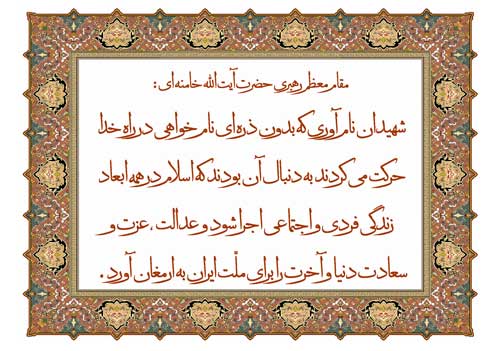 مقام معظم رهبری حضرت آیت الله خامنه ای :
شهیدان نام آوری که بدون ذره ای نام خواهی در راه خدا
حرکت می کردند به دنبال آن بودند که اسلام در همه ابعاد
زندگی فردی و اجتماعی اجرا شود و عدالت ، عزت و
سعادت دنیا و آخرت را برای ملّت ایران به ارمغان آورد .